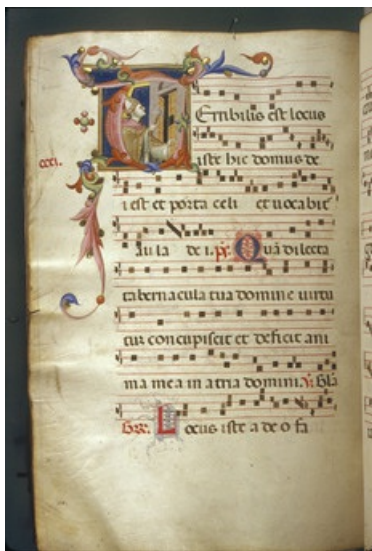 TErribilis est locus
iste hic domus de
i est et porta celi et uocabit᷑
aula de i. ps. Quā dilecta
tabernacula tua domine uirtu
tum concupiscit et deficit ani
ma mea in atria domini. ℣. Gla
Locus iste a deo fa